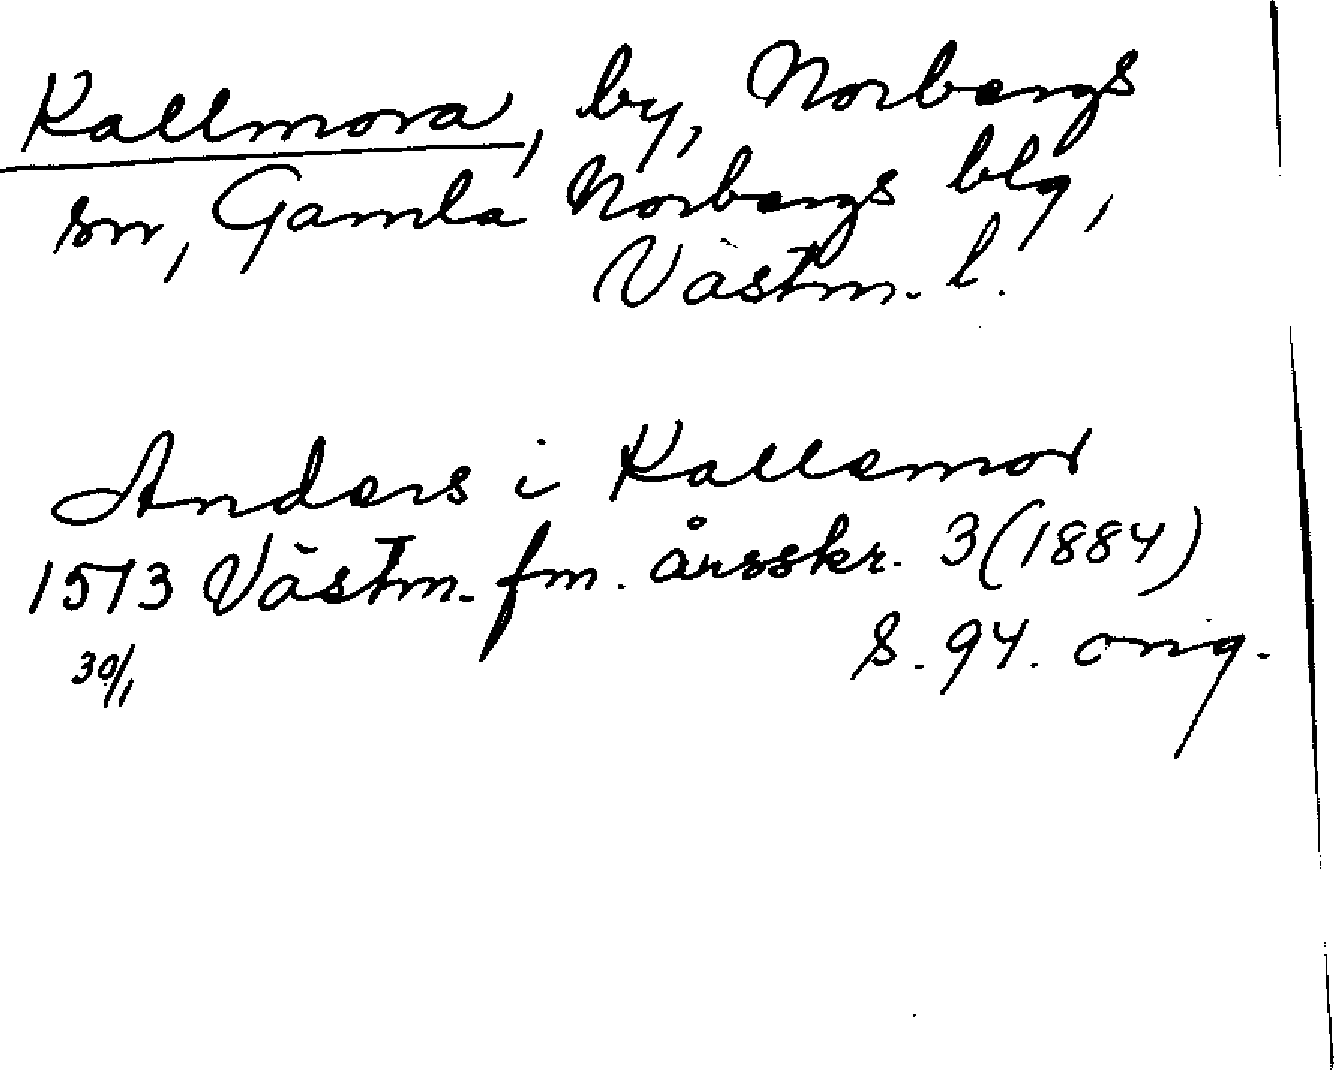 Kallmora, by, Norbergs
sn, Gamla Norbergs blg,
Västm. l.
Anders i Kallemor
1573 Västm. fm. årsskr. 3 (1884)
30/1
s. 94. orig.